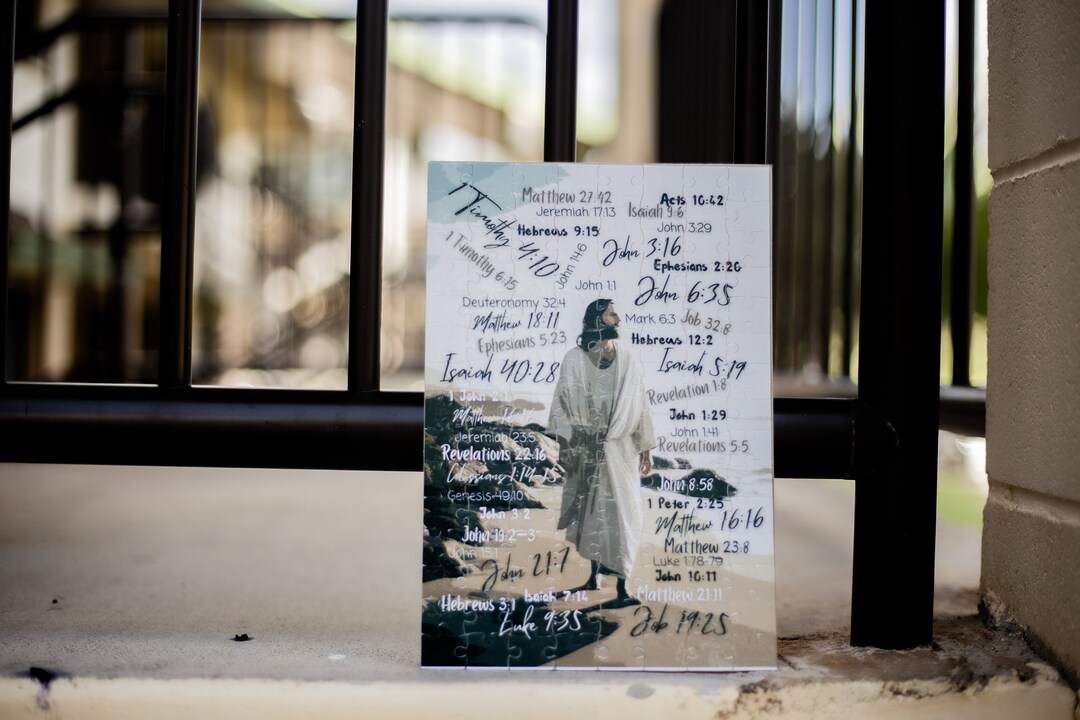 1 Timothy 4:10
Matthew 27:42
Acts 10:42
Jeremiah 17:13
Isaiah 9:6
Hebrews 9:15
John 3:29
1 Timothy 6:15
John 1:46
John 3:16
Ephesians 2:20
John 1:1
John 6:35
Deuteronomy 32:4
Matthew 18:11
Mark 6:3
Job 32:8
Ephesians 5:23
Hebrews 12:2
Isaiah 40:28
Isaiah 5:19
Revelation 1:8
1 John 2:1
Matthew
John 1:29
Jeremiah 23:5
John 1:41
Revelations 22:16
Revelations 5:5
Colossians 1:14-15
Genesis 49:10
John 8:58
John 3:2
1 Peter 2:25
Matthew 16:16
John 19:2-3
Matthew 23:8
John 15:1
Luke 1:78-79
John 21:7
John 10:11
Hebrews 3:1
Isaiah 7:14
Matthew 21:11
Luke 9:35
Job 19:25